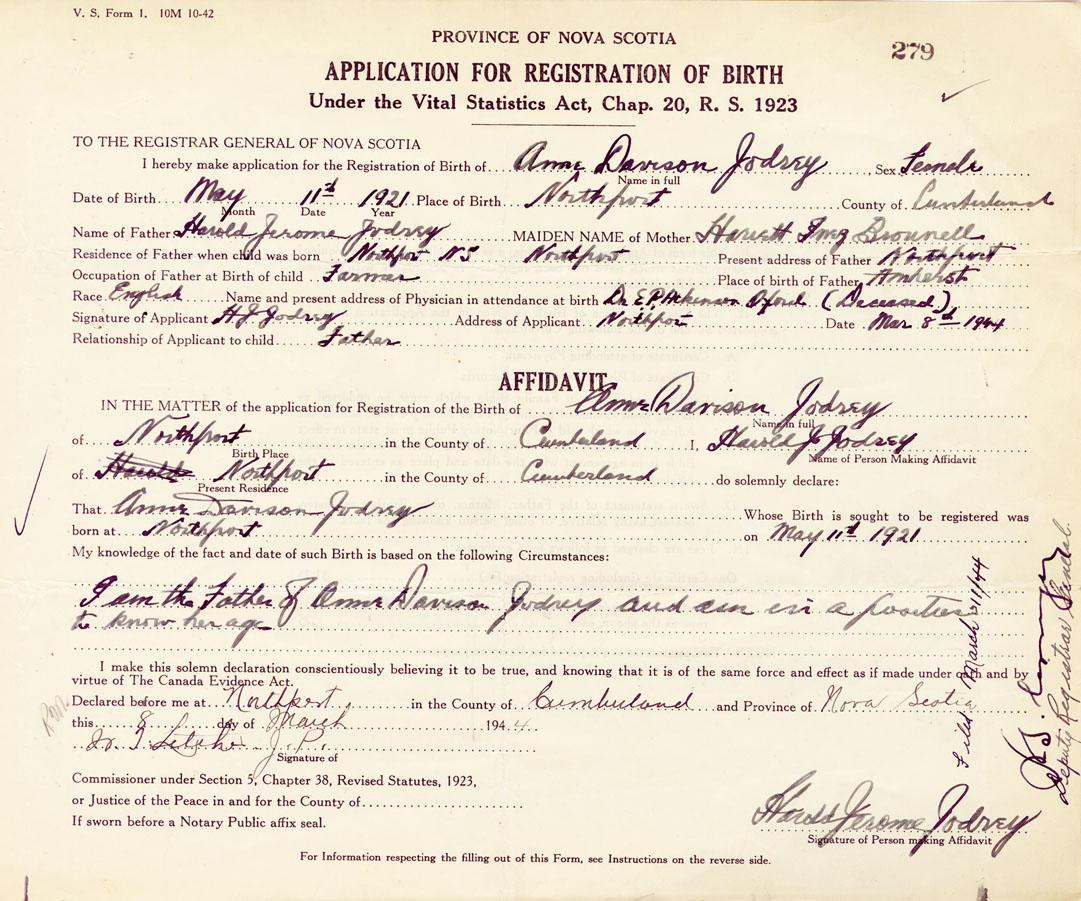 V. S. Form 1. 10M 10-42
PROVINCE OF NOVA SCOTIA
279
APPLICATION FOR REGISTRATION OF BIRTH
Under the Vital Statistics Act, Chap. 20, R. S. 1923
TO THE REGISTRAR GENERAL OF NOVA SCOTIA
I hereby make application for the Registration of Birth of Anne Davison Jodrey, Sex Female
Name in full
Date of Birth May 11th 1921 Place of Birth Northport County of Cumberland
Month Date Year
Name of Father Harold Jerome Jodrey MAIDEN NAME of Mother Hariett Inez Brownell
Residence of Father when child was born Northport NS Northport Present address of Father Northport
Occupation of Father at Birth of child Farmer Place of birth of Father Amherst
Race English Name and present address of Physician in attendance at birth Dr E P Atkinson Oxford (Deceased)
Signature of Applicant H J Jodrey Address of Applicant Northport Date Mar 8th 1944
Relationship of Applicant to child Father
AFFIDAVIT
IN THE MATTER of the application for Registration of the Birth of Anne Davison Jodrey
Name in full
of Northport in the County of Cumberland I, Harold J Jodrey
Birth Place Name of Person Making Affidavit
of Northport in the County of Cumberland do solemnly declare:
Present Residence
That Anne Davison Jodrey Whose Birth is sought to be registered was
born at Northport on May 11th 1921
My knowledge of the fact and date of such Birth is based on the following Circumstances:
I am the Father of Anne Davison Jodrey and am in a position
to know her age
I make this solemn declaration conscientiously believing it to be true, and knowing that it is of the same force and effect as if made under oath and by
virtue of The Canada Evidence Act.
Declared before me at Northport, in the County of Cumberland and Province of Nova Scotia
this 8 day of March 1944
J. P.
Signature of
Commissioner under Section 5, Chapter 38, Revised Statutes, 1923,
or Justice of the Peace in and for the County of
If sworn before a Notary Public affix seal.
Harold Jerome Jodrey
Signature of Person making Affidavit
For Information respecting the filling out of this Form, see Instructions on the reverse side.
Filed March
Deputy Registrar General.